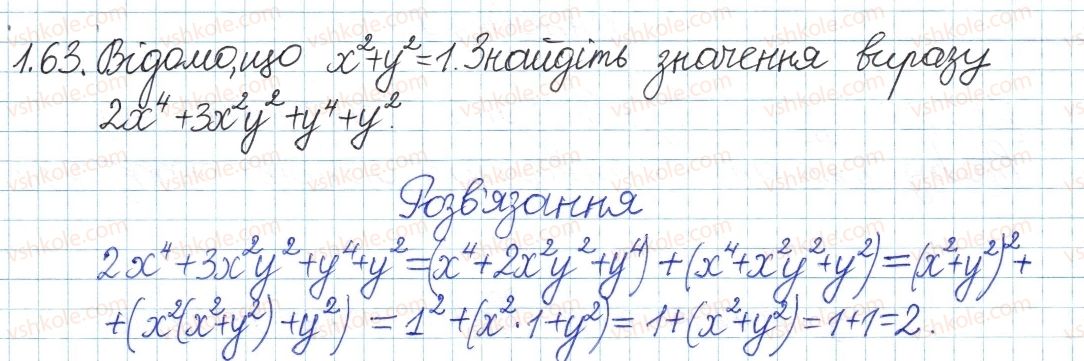 1.63. Відомо, що x²+y²=1. Знайдіть значення виразу
2x⁴+3x²y²+y⁴+y².
Розв'язання
2x⁴+3x²y²+y⁴+y²=(x⁴+2x²y²+y⁴)+(x⁴+x²y²+y²)=(x²+y²)²+
+(x²(x²+y²)+y²)=1²+(x²·1+y²)=1+(x²+y²)=1+1=2.